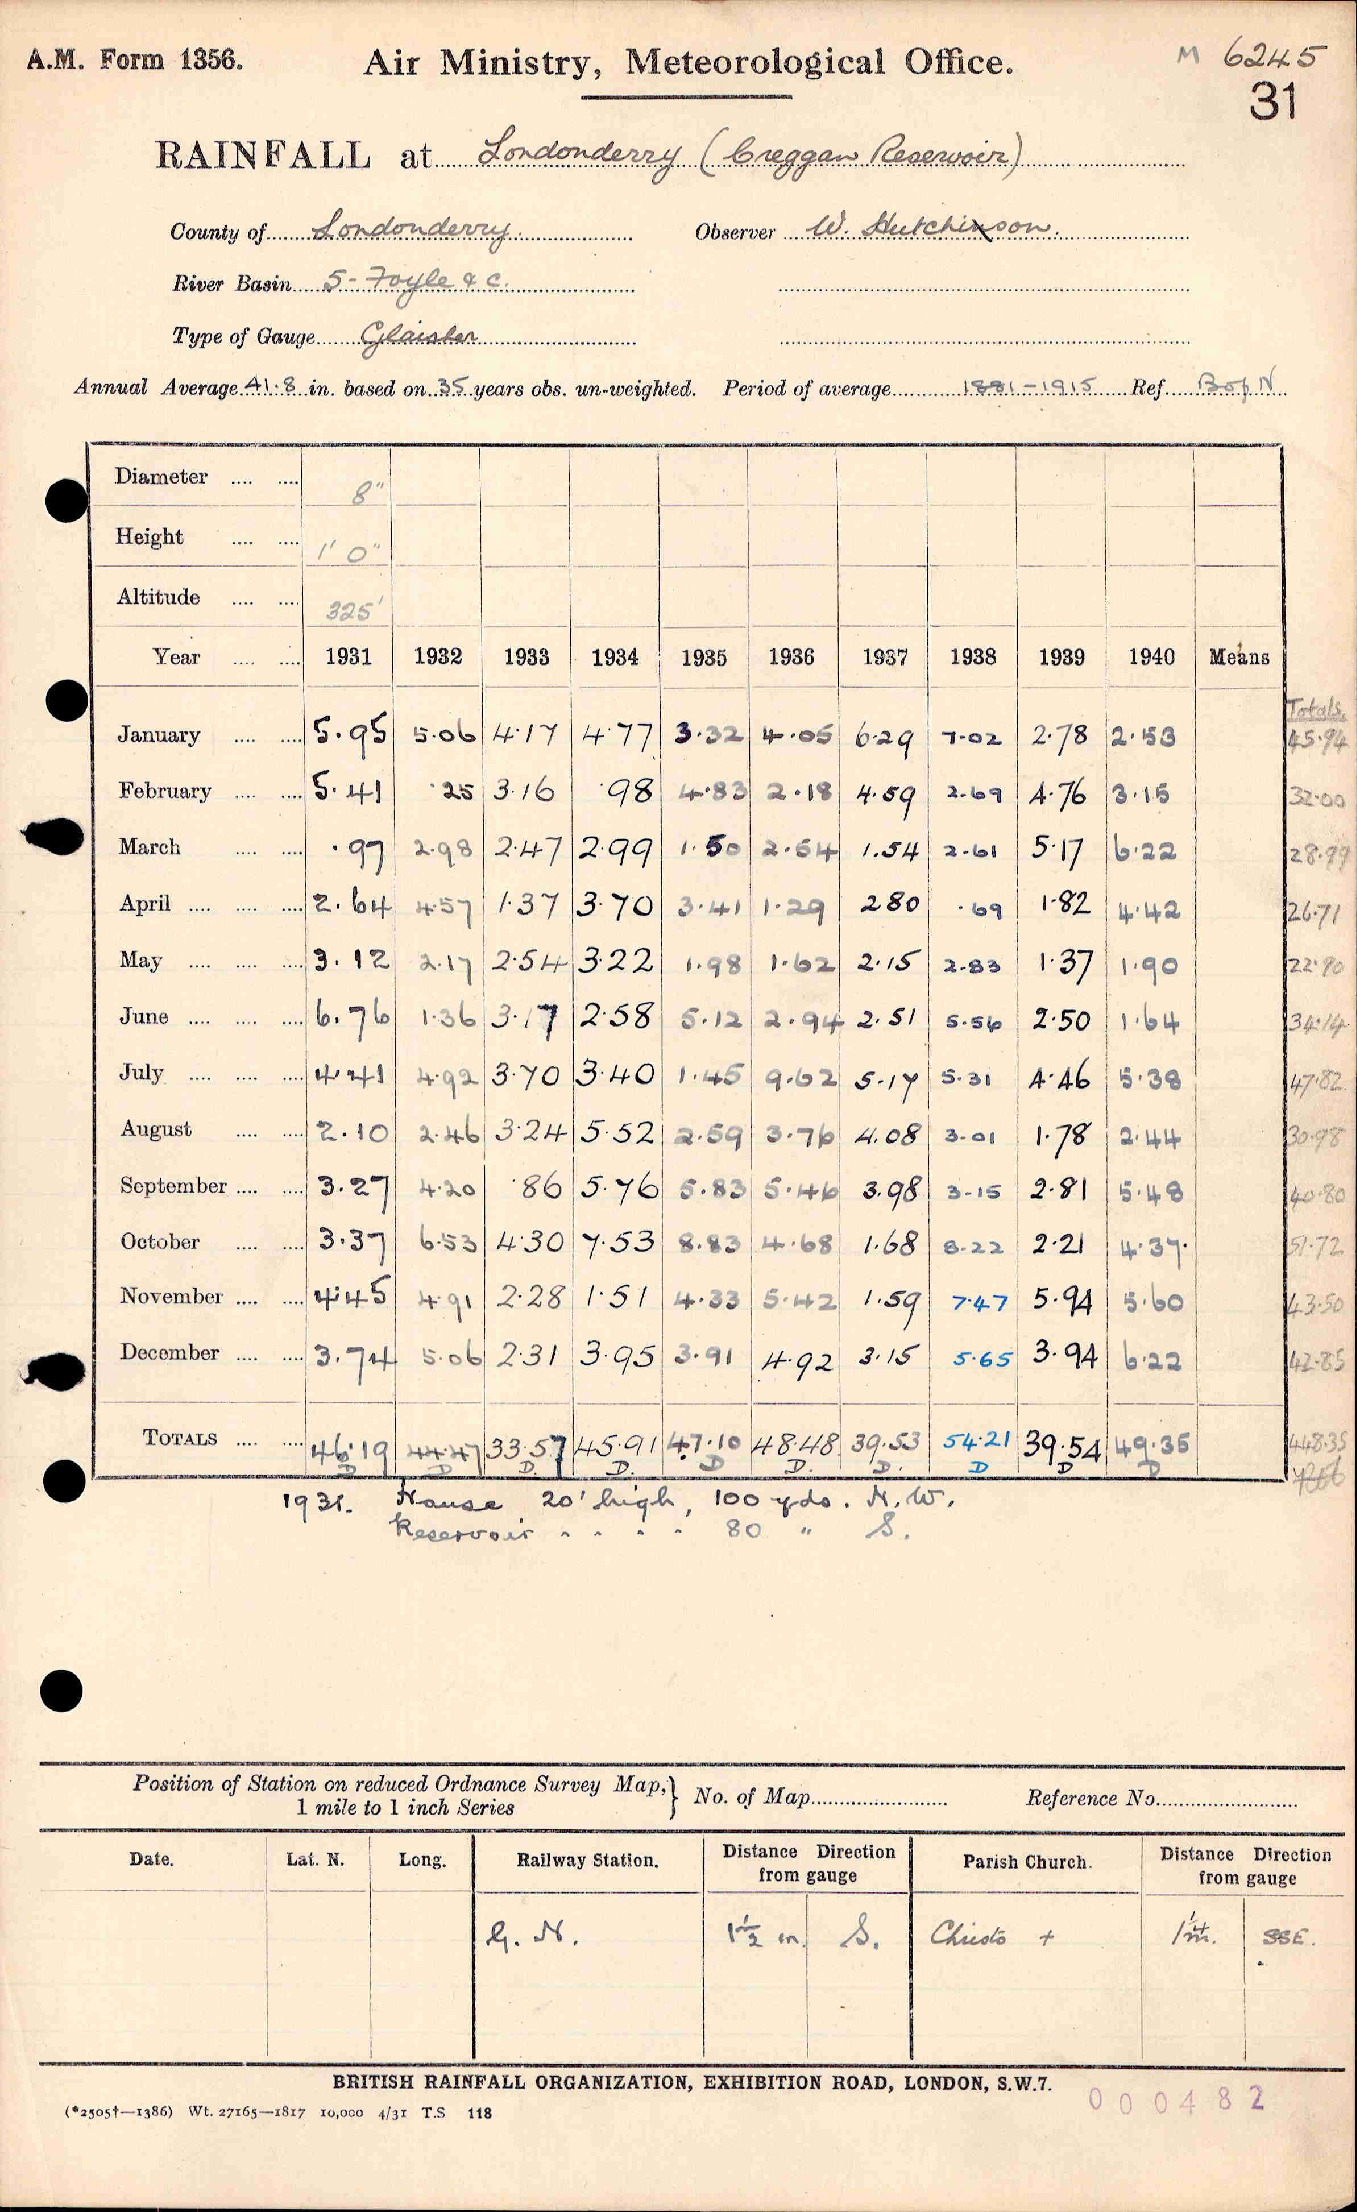 A.M. Form 1356.
Air Ministry, Meteorological Office.
M 6245
31
RAINFALL at Londonderry (Creggan Reservoir)
County of Londonderry. Observer W. Hutchinson.
River Basin 5-Foyle & c.
Type of Gauge Glaisher
Annual Average 41.8 in. based on 35 years obs. un-weighted. Period of average 1881-1915 Ref. B of N
Diameter .... .... 8"
Height .... .... 1' 0"
Altitude .... .... 325'
Year .... .... 1931 1932 1933 1934 1935 1936 1937 1938 1939 1940 Means
Totals.
January .... .... 5.95 5.06 4.17 4.77 3.32 4.05 6.29 7.02 2.78 2.53 45.94
February .... .... 5.41 .25 3.16 .98 4.83 2.18 4.59 2.69 4.76 3.15 32.00
March .... .... .97 2.98 2.47 2.99 1.50 2.54 1.54 2.61 5.17 6.22 28.99
April .... .... .... 2.64 4.57 1.37 3.70 3.41 1.29 2.80 .69 1.82 4.42 26.71
May .... .... .... 3.12 2.17 2.54 3.22 1.98 1.62 2.15 2.83 1.37 1.90 22.90
June .... .... .... 6.76 1.36 3.17 2.58 5.12 2.94 2.51 5.56 2.50 1.64 34.14
July .... .... .... 4.41 4.92 3.70 3.40 1.45 9.62 5.17 5.31 4.46 5.38 47.82
August .... .... 2.10 2.46 3.24 5.52 2.59 3.76 4.08 3.01 1.78 2.44 30.98
September .... .... 3.27 4.20 .86 5.76 5.83 5.46 3.98 3.15 2.81 5.48 40.80
October .... .... 3.37 6.53 4.30 7.53 8.83 4.68 1.68 8.22 2.21 4.37 51.72
November .... .... 4.45 4.91 2.28 1.51 4.33 5.42 1.59 7.47 5.94 5.60 43.50
December .... .... 3.74 5.06 2.31 3.95 3.91 4.92 3.15 5.65 3.94 6.22 42.85
TOTALS .... .... 46.19 44.47 33.57 45.91 47.10 48.48 39.53 54.21 39.54 49.35 448.35
D D D. D. D D. D. D D D
1931. House 20' high, 100 yds. N.W.
Reservoir - - - - 80 " S.
Position of Station on reduced Ordnance Survey Map,} No. of Map Reference No.
1 mile to 1 inch Series
Date. Lat. N. Long. Railway Station. Distance Direction from gauge Parish Church. Distance Direction from gauge
G. N. 1½ m. S. Christs + 1¼ m. SSE.
BRITISH RAINFALL ORGANIZATION, EXHIBITION ROAD, LONDON, S.W.7.
000482
(*2505†—1386) Wt. 27165—1817 10,000 4/31 T.S 118